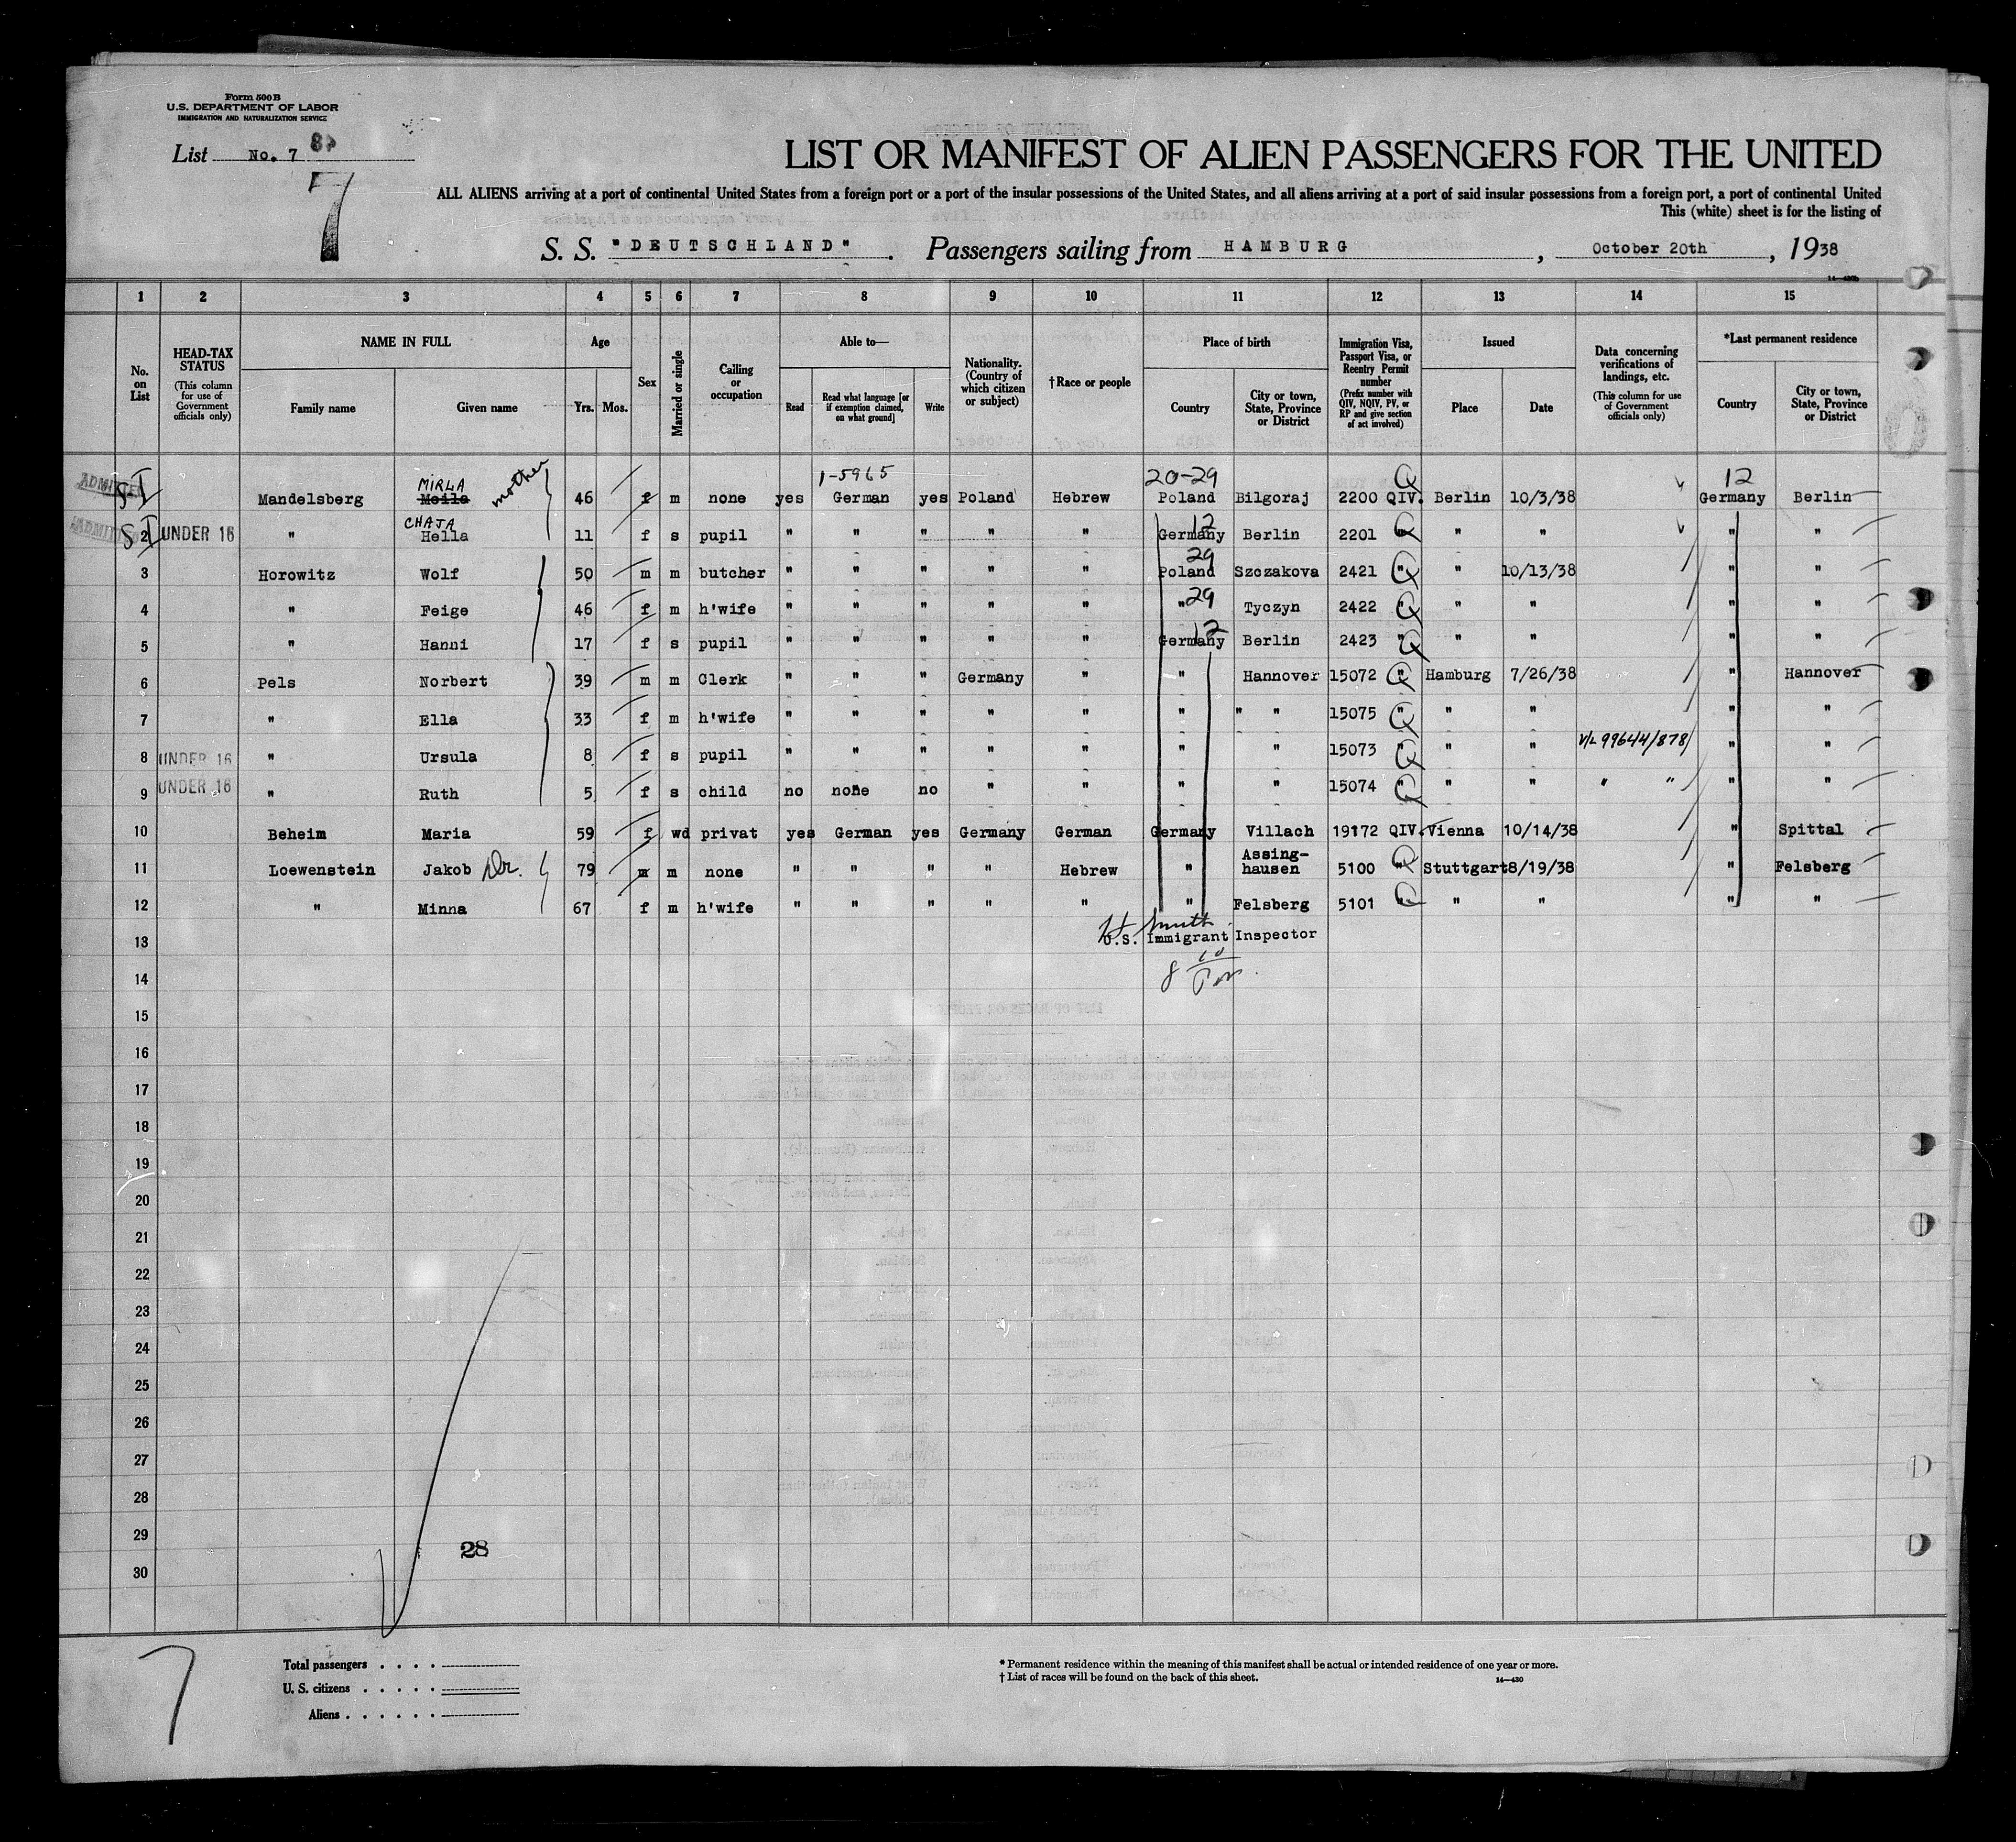 Form 500 B
U.S. DEPARTMENT OF LABOR
IMMIGRATION AND NATURALIZATION SERVICE
List No. 7
7
LIST OR MANIFEST OF ALIEN PASSENGERS FOR THE UNITED
ALL ALIENS arriving at a port of continental United States from a foreign port or a port of the insular possessions of the United States, and all aliens arriving at a port of said insular possessions from a foreign port, a port of continental United
This (white) sheet is for the listing of
S. S. "DEUTSCHLAND". Passengers sailing from HAMBURG, October 20th, 1938
1 2 3 4 5 6 7 8 9 10 11 12 13 14 15
No. on List
HEAD-TAX STATUS (This column for use of Government officials only)
NAME IN FULL Family name Given name
Age Yrs. Mos.
Sex
Married or single
Calling or occupation
Able to— Read Read what language [or if exemption claimed, on what ground] Write
Nationality. (Country of which citizen or subject)
†Race or people
Place of birth Country City or town, State, Province or District
Immigration Visa, Passport Visa, or Reentry Permit number (Prefix number with QIV, NQIV, PV, or RP and give section of act involved)
Issued Place Date
Data concerning verifications of landings, etc. (This column for use of Government officials only)
*Last permanent residence Country City or town, State, Province or District
MIRLA mother 1-5965 20-29 Q 12
ADMITTED SI Mandelsberg Meila 46 f m none yes German yes Poland Hebrew Poland Bilgoraj 2200 QIV. Berlin 10/3/38 Germany Berlin
CHAJA 12
2 UNDER 16 " Hella 11 f s pupil " " " " " Germany Berlin 2201 " Q " " " "
29
3 Horowitz Wolf 50 m m butcher " " " " " Poland Szczakova 2421 " Q " 10/13/38 " "
4 " Feige 46 f m h'wife " " " " " " 29 Tyczyn 2422 " Q " " " "
12
5 " Hanni 17 f s pupil " " " " " Germany Berlin 2423 " Q " " " "
6 Pels Norbert 39 m m Clerk " " " Germany " " Hannover 15072 " Q Hamburg 7/26/38 " Hannover
7 " Ella 33 f m h'wife " " " " " " " " 15075 " Q " " " "
8 UNDER 16 " Ursula 8 f s pupil " " " " " " " 15073 " Q " " V/L 99644/878 " "
9 UNDER 16 " Ruth 5 f s child no none no " " " " 15074 " Q " " " " " "
10 Beheim Maria 59 f wd privat yes German yes Germany German Germany Villach 19172 QIV. Vienna 10/14/38 " Spittal
11 Loewenstein Jakob Dr. 79 m m none " " " " Hebrew " Assing-
hausen 5100 " Q Stuttgart 8/19/38 " Felsberg
12 " Minna 67 f m h'wife " " " " " " Felsberg 5101 " Q " " " "
Smith
13 U.S. Immigrant Inspector
14
15
16
17
18
19
20
21
22
23
24
25
26
27
28
29
28
30
7
Total passengers . . . .
U. S. citizens . . . . .
Aliens . . . . . .
* Permanent residence within the meaning of this manifest shall be actual or intended residence of one year or more.
† List of races will be found on the back of this sheet.
14—430